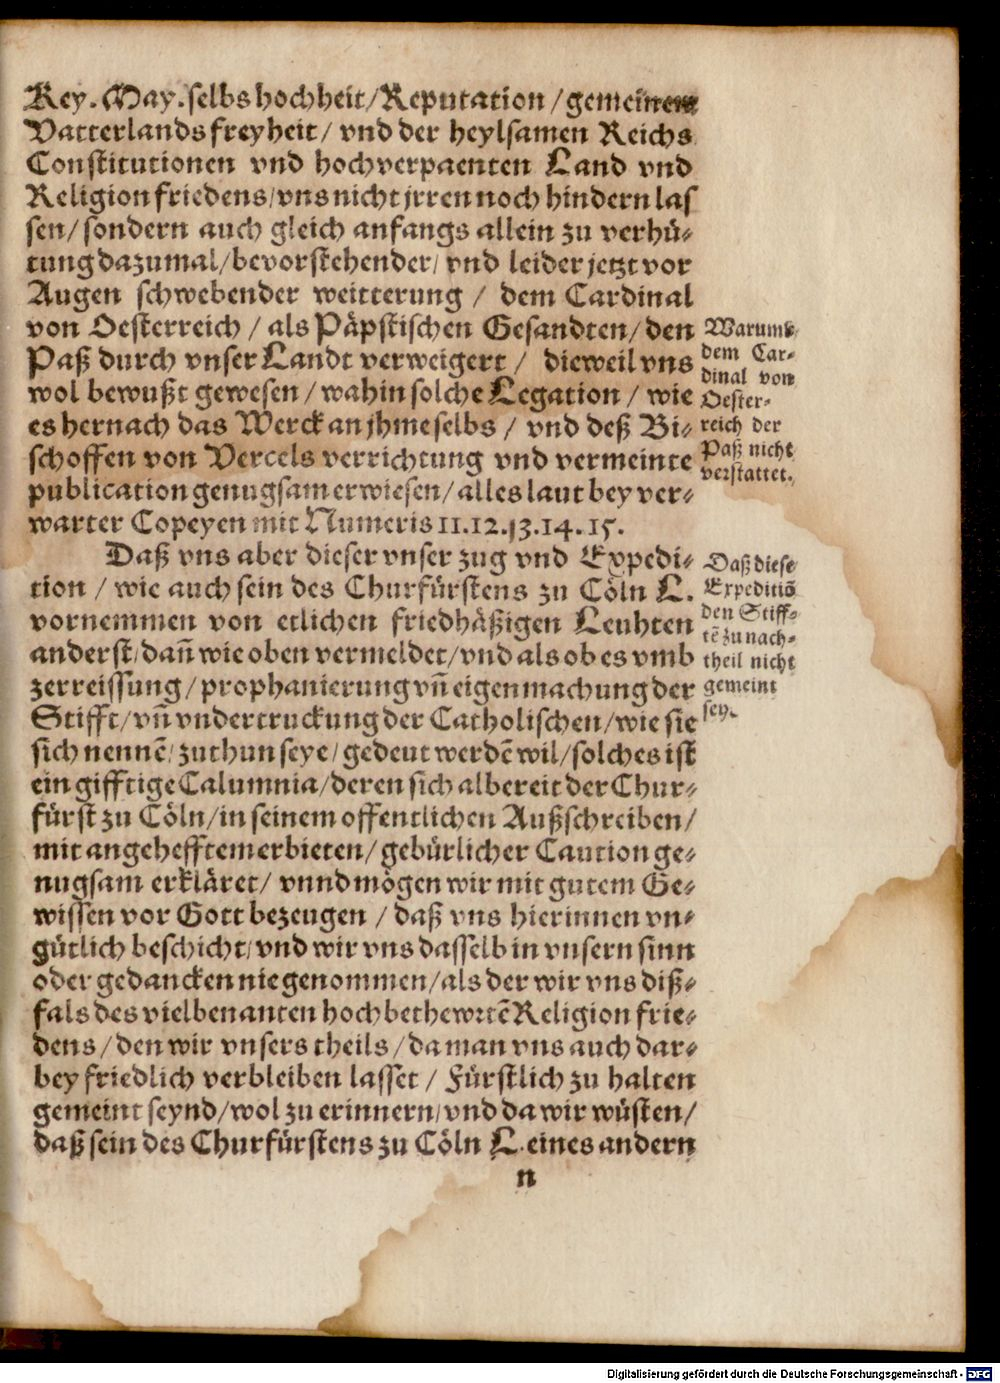 Key. May. selbs hochheit/ Reputation / gemeinem
Vatterlands freyheit/ vnd der heylsamen Reichs
Constitutionen vnd hochverpaenten Land vnd
Religion friedens/ vns nicht jrren noch hindern las
sen/ sondern auch gleich anfangs allein zu verhü⸗
tung dazumal/ bevorstehender/ vnd leider jetzt vor
Augen schwebender weitterung / dem Cardinal
von Oesterreich / als Päpstischen Gesandten/ den
Paß durch vnser Landt verweigert / dieweil vns
wol bewußt gewesen / wahin solche Legation / wie
es hernach das Werck an jhme selbs / vnd deß Bi⸗
schoffen von Vercels verrichtung vnd vermeinte
publication genugsam erwiesen/ alles laut bey ver⸗
warter Copeyen mit Numeris 11.12.13.14.15.
Warumb
dem Car⸗
dinal von
Oester⸗
reich der
Paß nicht
verstattet.
Daß vns aber dieser vnser zug vnd Expedi⸗
tion / wie auch sein des Churfürstens zu Cöln L.
vornemmen von etlichen friedhäßigen Leuhten
anderst/ dañ wie oben vermeldet/ vnd als ob es vmb
zerreissung/ prophanierung vñ eigenmachung der
Stifft/ vñ vndertruckung der Catholischen/ wie sie
sich nennẽ/ zuthun seye/ gedeut werdẽ wil/ solches ist
ein gifftige Calumnia/ deren sich albereit der Chur⸗
fürst zu Cöln/ in seinem offentlichen Außschreiben/
mit angehefftem erbieten/ gebürlicher Caution ge⸗
nugsam erkläret/ vnnd mögen wir mit gutem Ge⸗
wissen vor Gott bezeugen / daß vns hierinnen vn⸗
gütlich beschicht/ vnd wir vns dasselb in vnsern sinn
oder gedancken nie genommen/ als der wir vns diß⸗
fals des vielbenanten hochbethewrtẽ Religion frie⸗
dens/ den wir vnsers theils/ da man vns auch dar⸗
bey friedlich verbleiben lasset / Fürstlich zu halten
gemeint seynd/ wol zu erinnern/ vnd da wir wüsten/
daß sein des Churfürstens zu Cöln L. eines andern
Daß diese
Expeditiõ
den Stiff⸗
tẽ zu nach⸗
theil nicht
gemeint
sey.
n
Digitalisierung gefördert durch die Deutsche Forschungsgemeinschaft - DFG